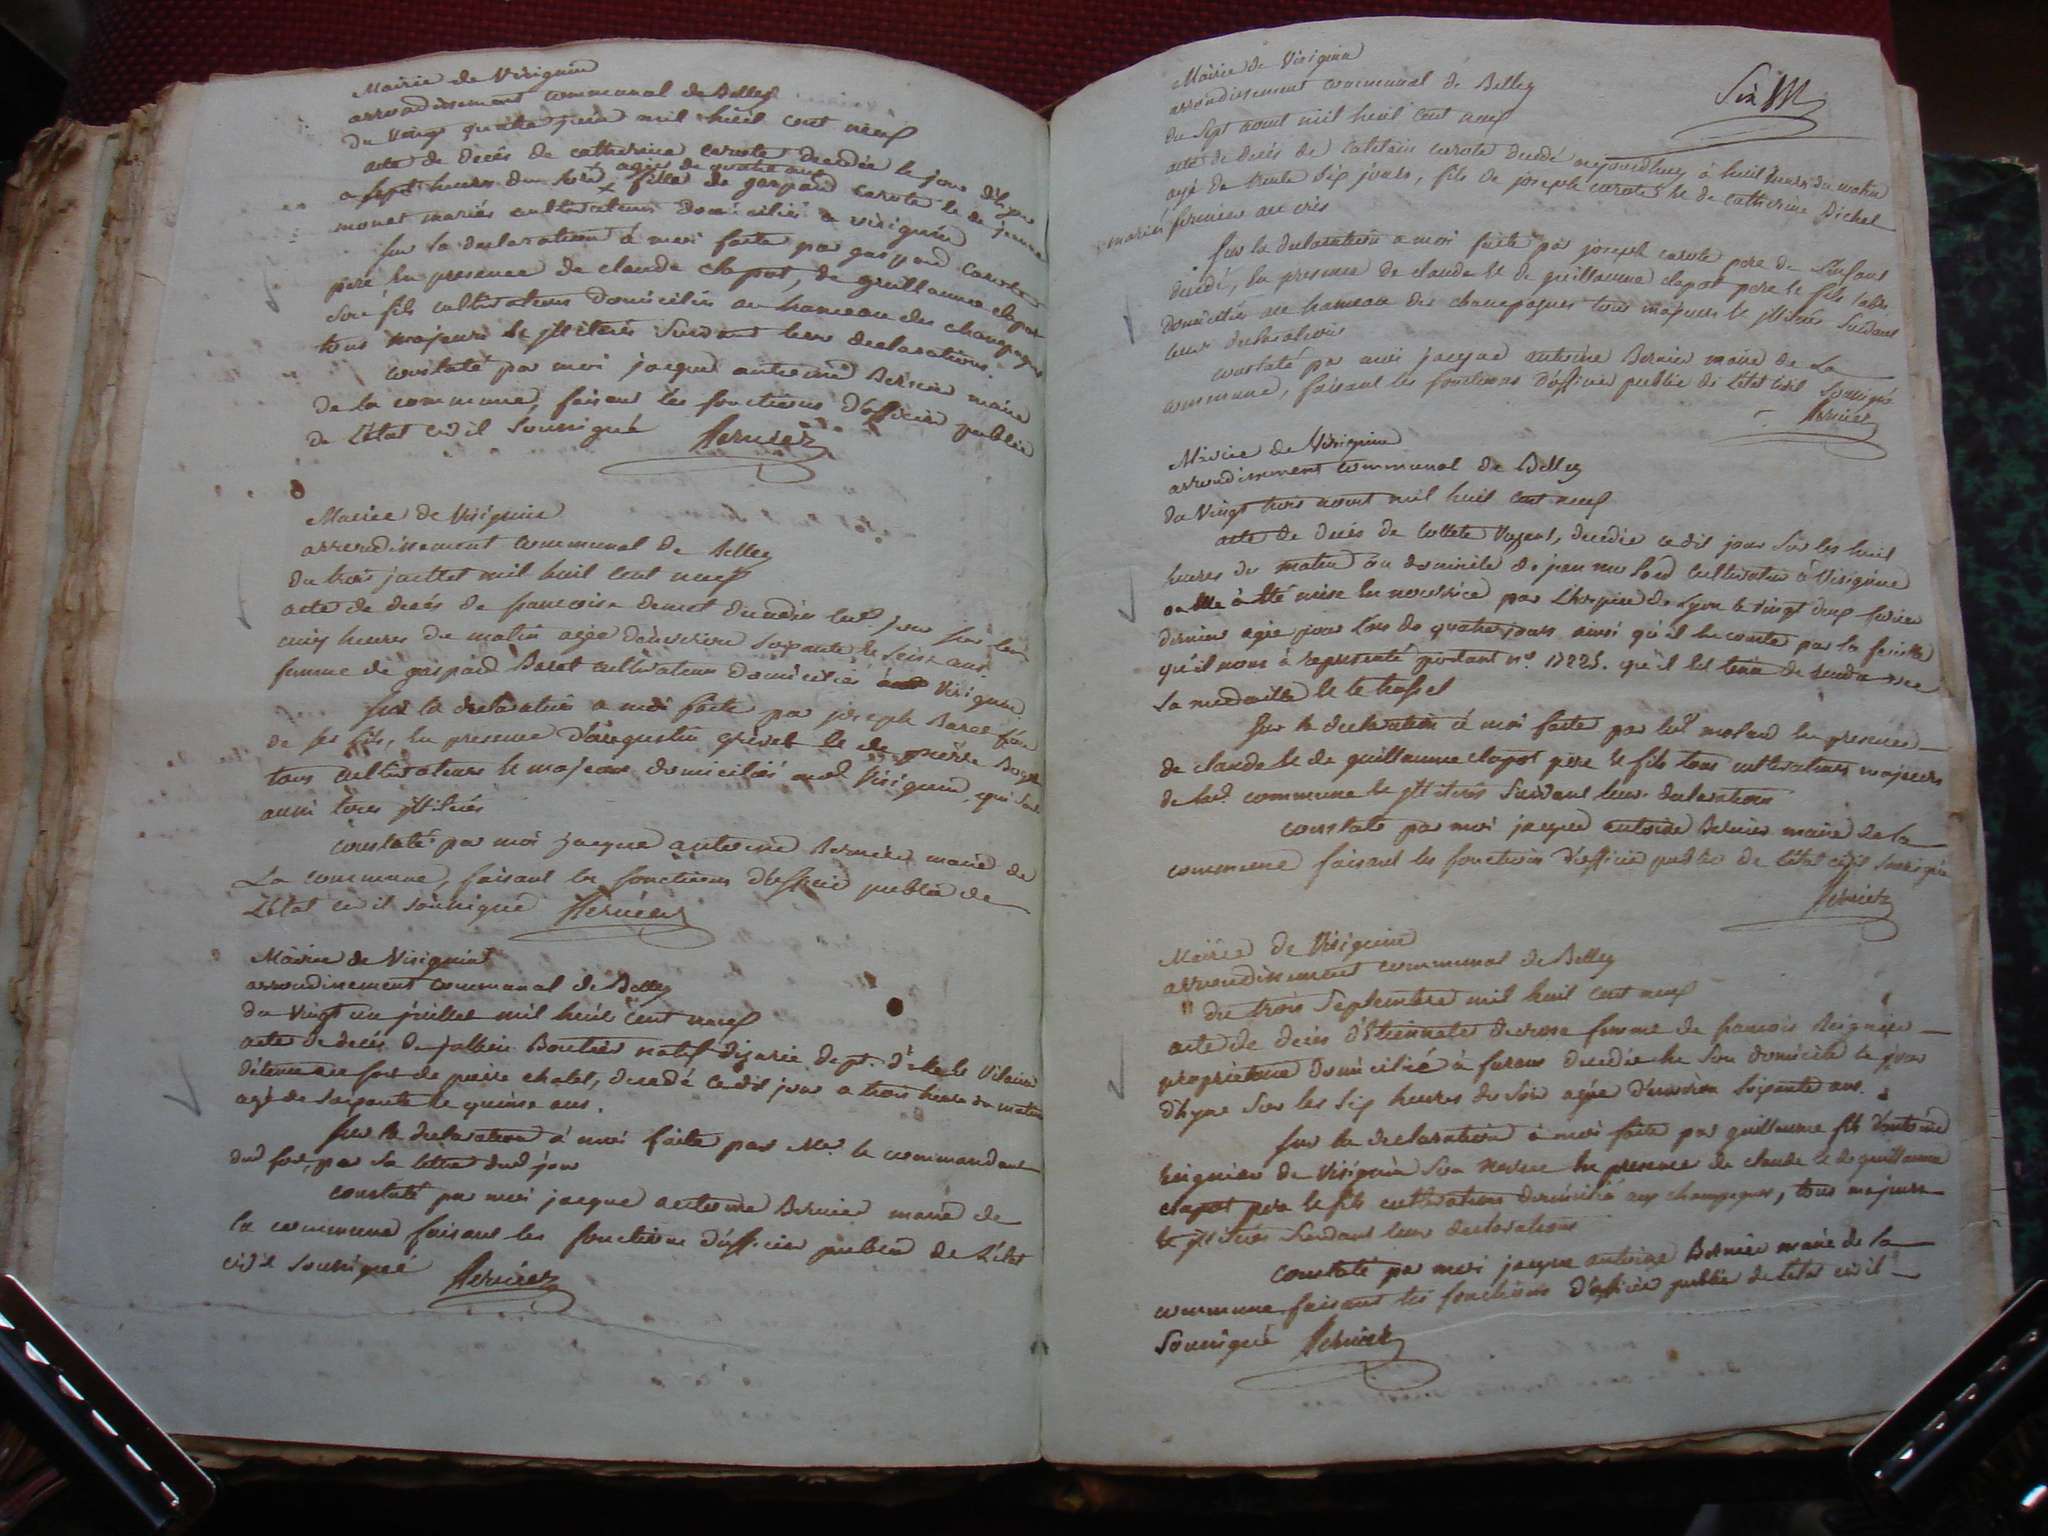 Mairie de Virignin
arrondissement communal de Belley
du vingt quatre juin mil huit cent neuf
acte de décès de catherine carote decedée le jour d'hyer
a sept heures du soir agée de quatre ans fille de gaspard carote & de jeanne
monet mariés cultivateurs domiciliés a virignin
sur la declaration à moi faite par gaspard carote
pere en presence de claude clapot, de guillaume clapot
son fils cultivateurs domiciliés au hameau des champagnes
tous majeurs & illiterés suivant leur declarations.
constaté par moi jacque antoine Bernier maire
de la commune, faisant les fonctions d'officier public
de l'état civil soussigné Bernier
Mairie de Virignin
arrondissement communal de Belley
du trois juillet mil huit cent neuf
acte de decés de francoise demet decedée led. jour sur les
cinq heures du matin agée d'environ soixante & seize ans
femme de gaspard Baret cultivateurs domiciliés Virignin
sur la declaration a moi faite par joseph Baret
de ses fils, en presence d'augustin & de pierre
tous cultivateurs & majeurs domiciliés aud. Virignin, qui sont
aussi tous illiterés
constaté par moi jacque antoine Bernier maire de
La commune, faisant les fonctions d'officier public de
L'état civil soussigné Bernier
Mairie de Virignin
arrondissement communal de Belley
du vingt un juillet mil huit cent neuf
acte de decés de Boutier natif dept. d'ille & Vilaine
détenu au fort de pierre chatel, decedé cedit jour a trois heures du matin
agé de soixante & quinze ans.
sur la declaration à moi faite par Mr. le commandant
dud fort, par sa lettre dud jour
constaté par moi jacque antoine Bernier maire de
la commune faisant les fonctions d'officier public de L'état
civil soussigné Bernier
Six
Mairie de Virignin
arrondissement communal de Belley
du sept aout mil huit cent neuf
acte de decés de carote decedé aujourdhuy à huit heures du matin
agé de trente six jours, fils de joseph carote & de catherine Bichel
mariés fermiers au
sur la declaration a moi faite par joseph carote pere de L'enfant
decedé, en presence de claude & de guillaume clapot pere & fils
domiciliés au hameau des champagnes tous majeurs & illiterés suivant
leurs declarations
constaté par moi jacque antoine Bernier maire de La
commune, faisant les fonctions d'officier public de L'état civil soussigné
Bernier
Mairie de Virignin
arrondissement communal de Belley
du vingt trois aout mil huit cent neuf
acte de decés de Collete decedée cedit jour sur les huit
heures du matin au domicile de jean cultivateur à Virignin
ou elle à été mise en nourrice par L'hospice de Lyon le vingt deux fevrier
dernier agée pour lors de quatre jours ainsi qu'il en conste par la
qu'il nous à representé portant no. 17225. qu'il est tenu de rendre avec
sa medaille & le trossel
sur la declaration à moi faite par led. molard en presence
de claude & de guillaume clapot pere & fils tous cultivateurs majeurs
de lad. commune & illiterés suivant leur declaration
constaté par moi jacque antoine Bernier maire de la
commune faisant les fonctions d'officier public de l'état civil soussigné
Bernier
Mairie de Virignin
arrondissement communal de Belley
du trois septembre mil huit cent neuf
acte de decés d'Etiennete femme de francois Reignier
proprietaire domicilié à furans decedée en son domicile le jour
d'hyer sur les six heures du soir agée d'environ soixante ans.
sur la declaration à moi faite par guillaume fils d'antoine
Reignier de Virignin son neveu en presence de claude & de guillaume
clapot pere & fils cultivateurs domiciliés aux champagnes, tous majeurs
& illiterés suivant leur declarations
constaté par moi jacque antoine Bernier maire de la
commune faisant les fonctions d'officier public de l'etat civil
soussigné Bernier